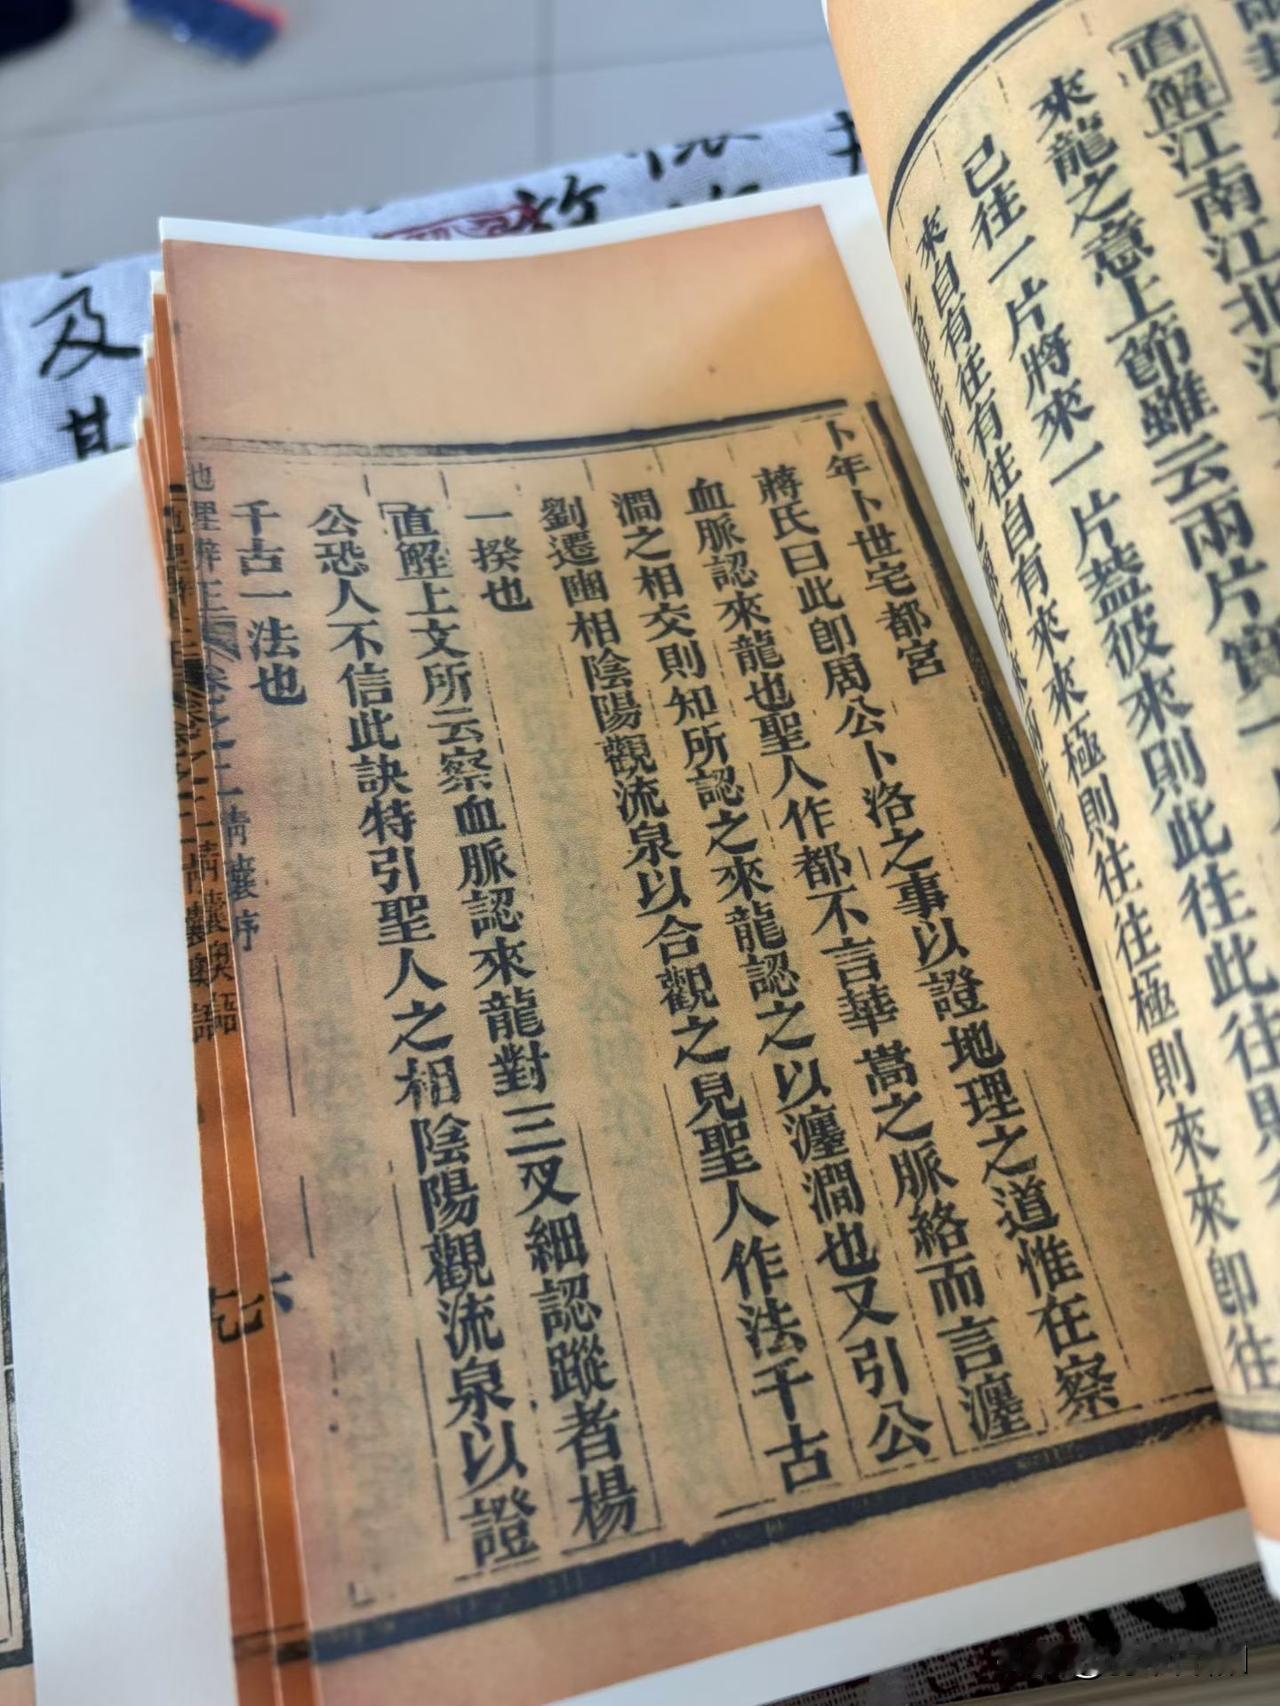 直解江南江北江
來龍之意上節雖云兩片實一
已往一片將來一片葢彼來則此往此往則
來自有往有往自有來來極則往往極則來來即往
卜年卜世宅都宮
蔣氏曰此卽周公卜洛之事以證地理之道惟在察
血脈認來龍也聖人作都不言華嵩之脈絡而言瀍
澗之相交則知所認之來龍認之以瀍澗也又引公
劉遷豳相陰陽觀流泉以合觀之見聖人作法千古
一揆也
直解上文所云察血脈認來龍對三叉細認蹤者楊
公恐人不信此訣特引聖人之相陰陽觀流泉以證
千古一法也
地理辨正 卷之二 青囊序 六
青囊奧語 七
及其